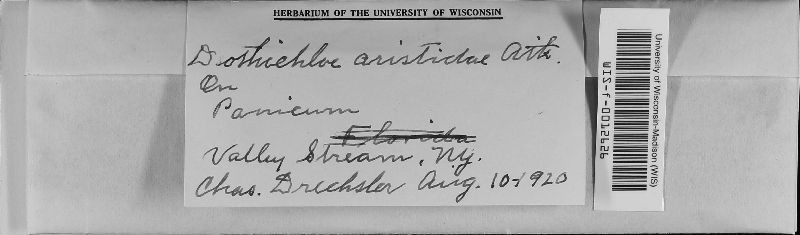 HERBARIUM OF THE UNIVERSITY OF WISCONSIN
Dothichloe aristidae Atk.
On
Panicum
Florida
Valley Stream, N.Y.
Chas. Drechsler Aug. 10-1920
University of Wisconsin-Madison (WIS)
WIS-f-0012626